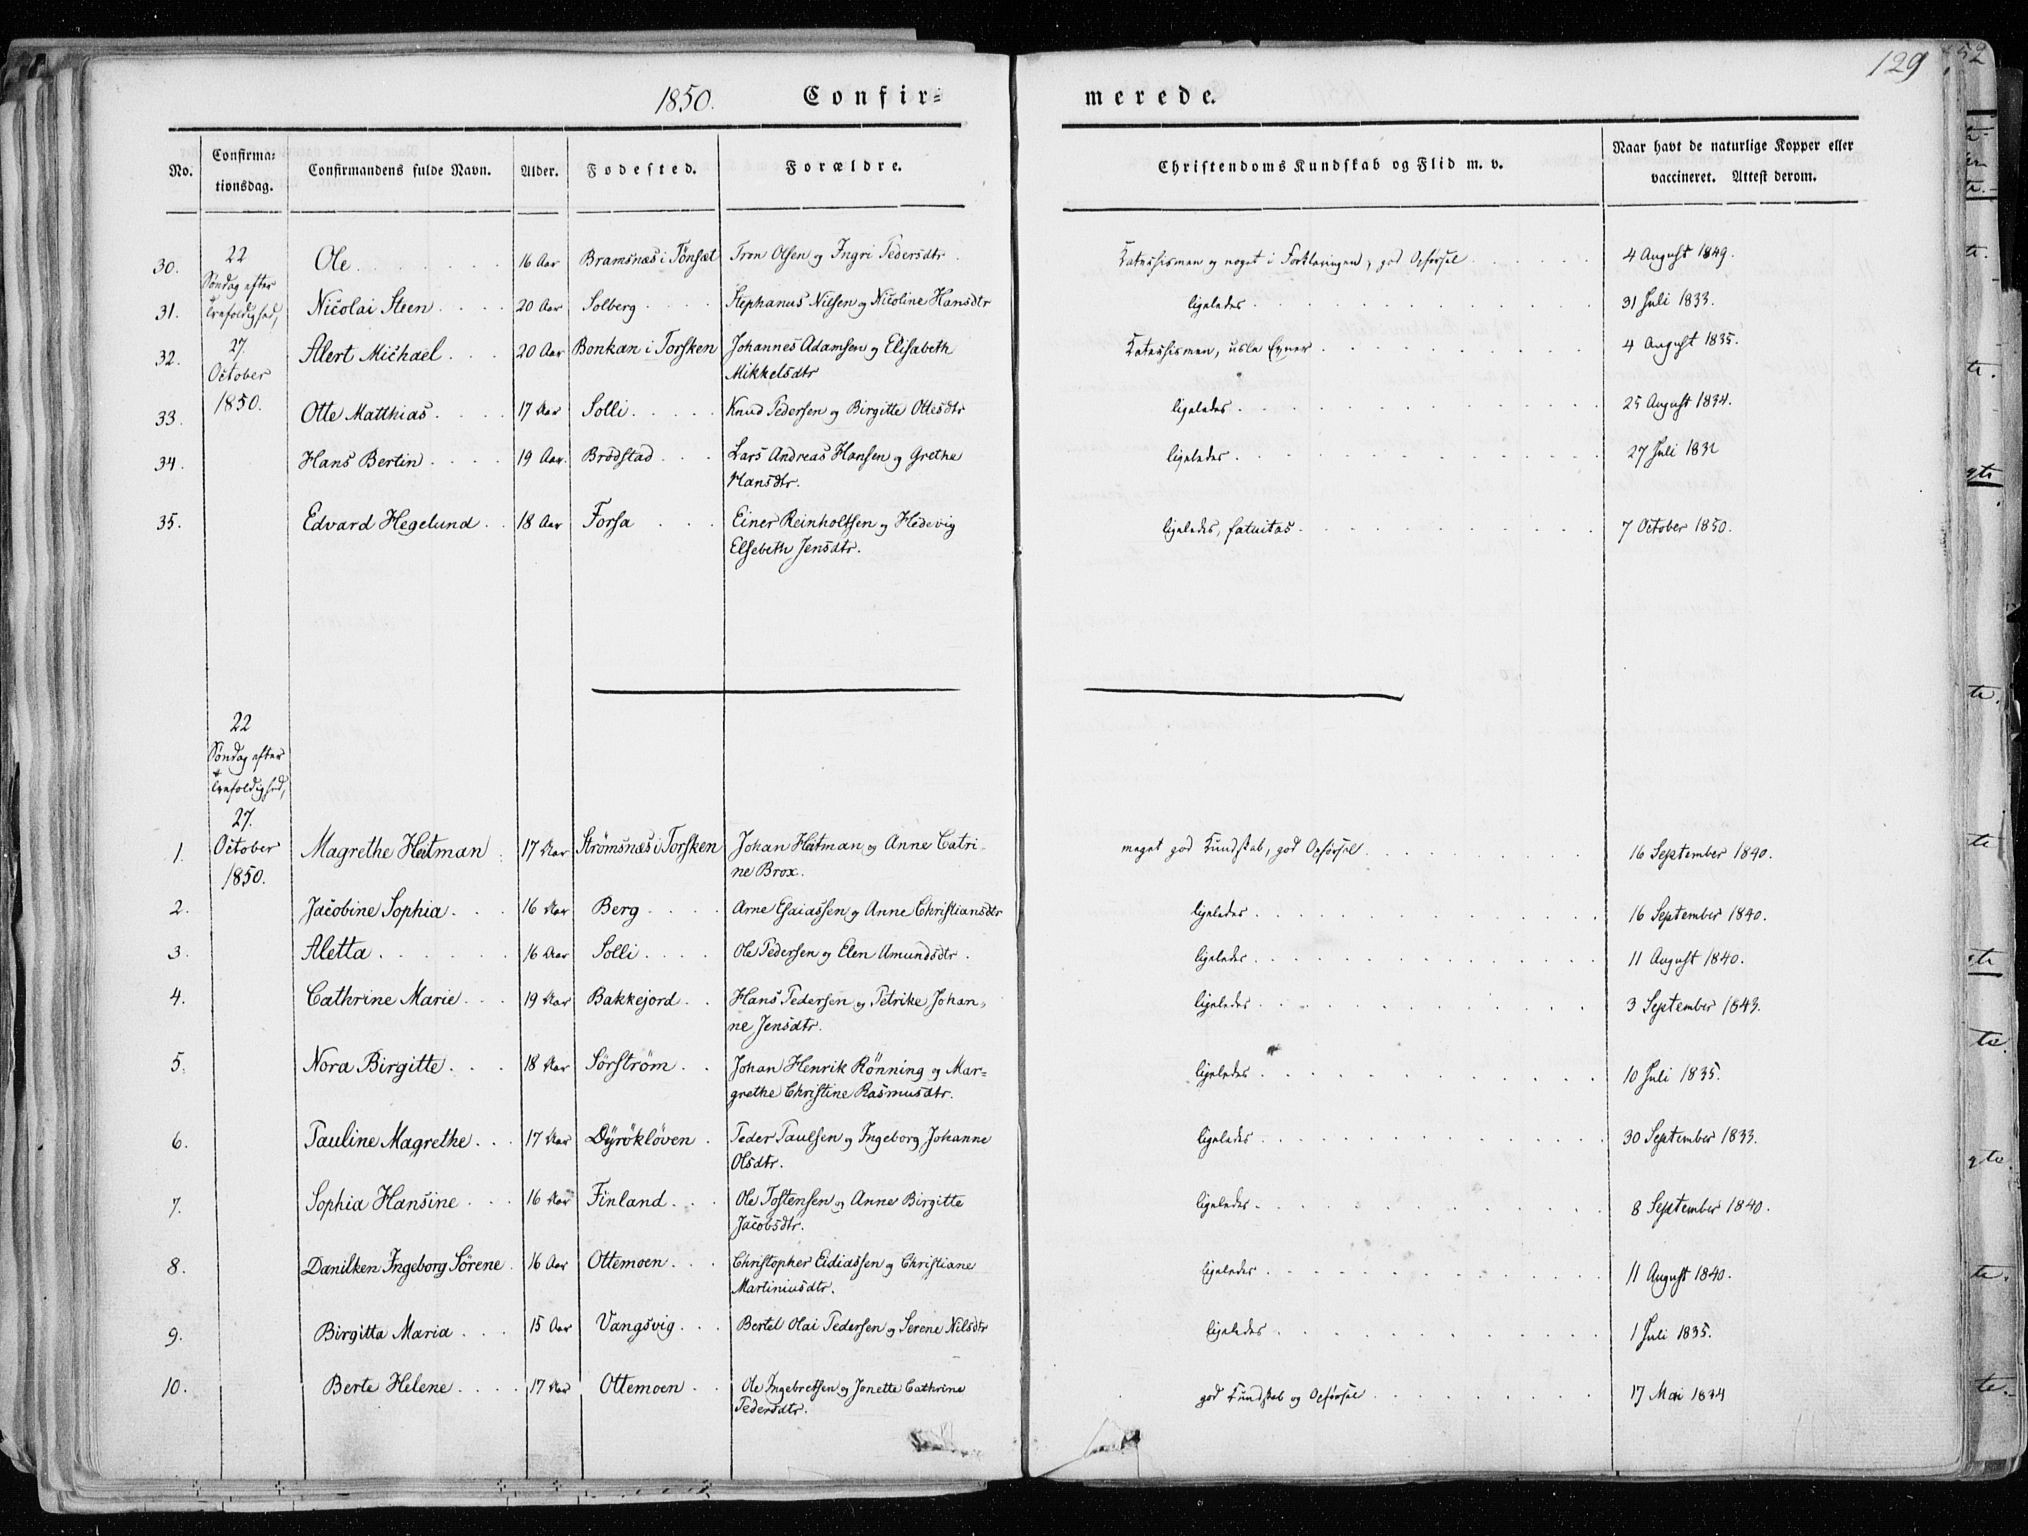 129
52
1850. Confir= merede.
No. Confirma= tionsdag. Confirmandens fulde Navn. Alder. Fødested. Forældre. Christendoms Kundskab og Flid m. v. Naar havt de naturlige Kopper eller vaccineret. Attest derom.
30. 22 Søndag efter Trefoldighed, 27. October 1850. Ole 16 Aar Bramsnæs i Tönsæt Tron Olsen og Ingri Pedersdtr. Katechismen og noget i Forklaringen, god Opførsel 4 August 1849.
31. Nicolai Steen 20 Aar Solberg Stephanus Nilsen og Nicoline Hansdtr ligeledes 31 Juli 1833.
32. Alert Michael 20 Aar Bonkan i Torsken Johannes Adamsen og Elisabeth
Mikkelsdtr Katechismen, usle Evner 4 August 1835.
33. Otte Matthias 17 Aar Solli Knud Pedersen og Birgitte Ottesdtr ligeledes 25 August 1834.
34. Hans Bertin 19 Aar. Brödstad Lars Andreas Hansen og Grethe
Hansdtr. ligeledes 27 Juli 1832
35. Edvard Hegelund 18 Aar Forsa Einer Reinholtsen og Hedevig
Elsebeth Jensdtr. ligeledes, fatuitas 7 October 1850.
22
Søndag efter
Trefoldighed,
27.
October
1850.
1. Magrethe Heitman 17 Aar Strömsnæs i Torsken Johan Heitman og Anne Catri-
ne Brox. meget god Kundskab, god Opførsel 16 September 1840.
2. Jacobine Sophia 16 Aar Berg Arne Esaiassen og Anne Christiansdtr ligeledes 16 September 1840.
3. Aletta 16 Aar Solli Ole Pedersen og Elen Amundsdtr. ligeledes 11 August 1840.
4. Cathrine Marie 19 Aar Bakkejord Hans Pedersen og Petrike Johan-
ne Jensdtr. ligeledes 3 September 1843.
5. Nora Birgitte 18 Aar Sörström Johan Henrik Rönning og Mar=
grethe Christine Rasmusdtr. ligeledes 10 Juli 1835.
6. Pauline Magrethe 17 Aar Dyröklöven Peder Paulsen og Ingeborg Johanne
Olsdtr. ligeledes 30 September 1833.
7. Sophia Hansine 16 Aar Finland Ole Tostensen og Anne Birgitte
Jacobsdtr. ligeledes 8 September 1840.
8. Danilken Ingeborg Sörene 16 Aar Ottemoen Christopher Eidiassen og Christiane
Martiniusdtr. ligeledes 11 August 1840.
9. Birgitta Maria 15 Aar Vangsvig Bertel Olai Pedersen og Serene Nilsdtr ligeledes 1 Juli 1835.
10. Berte Helene 17 Aar Ottemoen Ole Ingebretsen og Jonette Cathrine
Pedersdtr. god Kundskab og Opførsel 17 Mai 1834